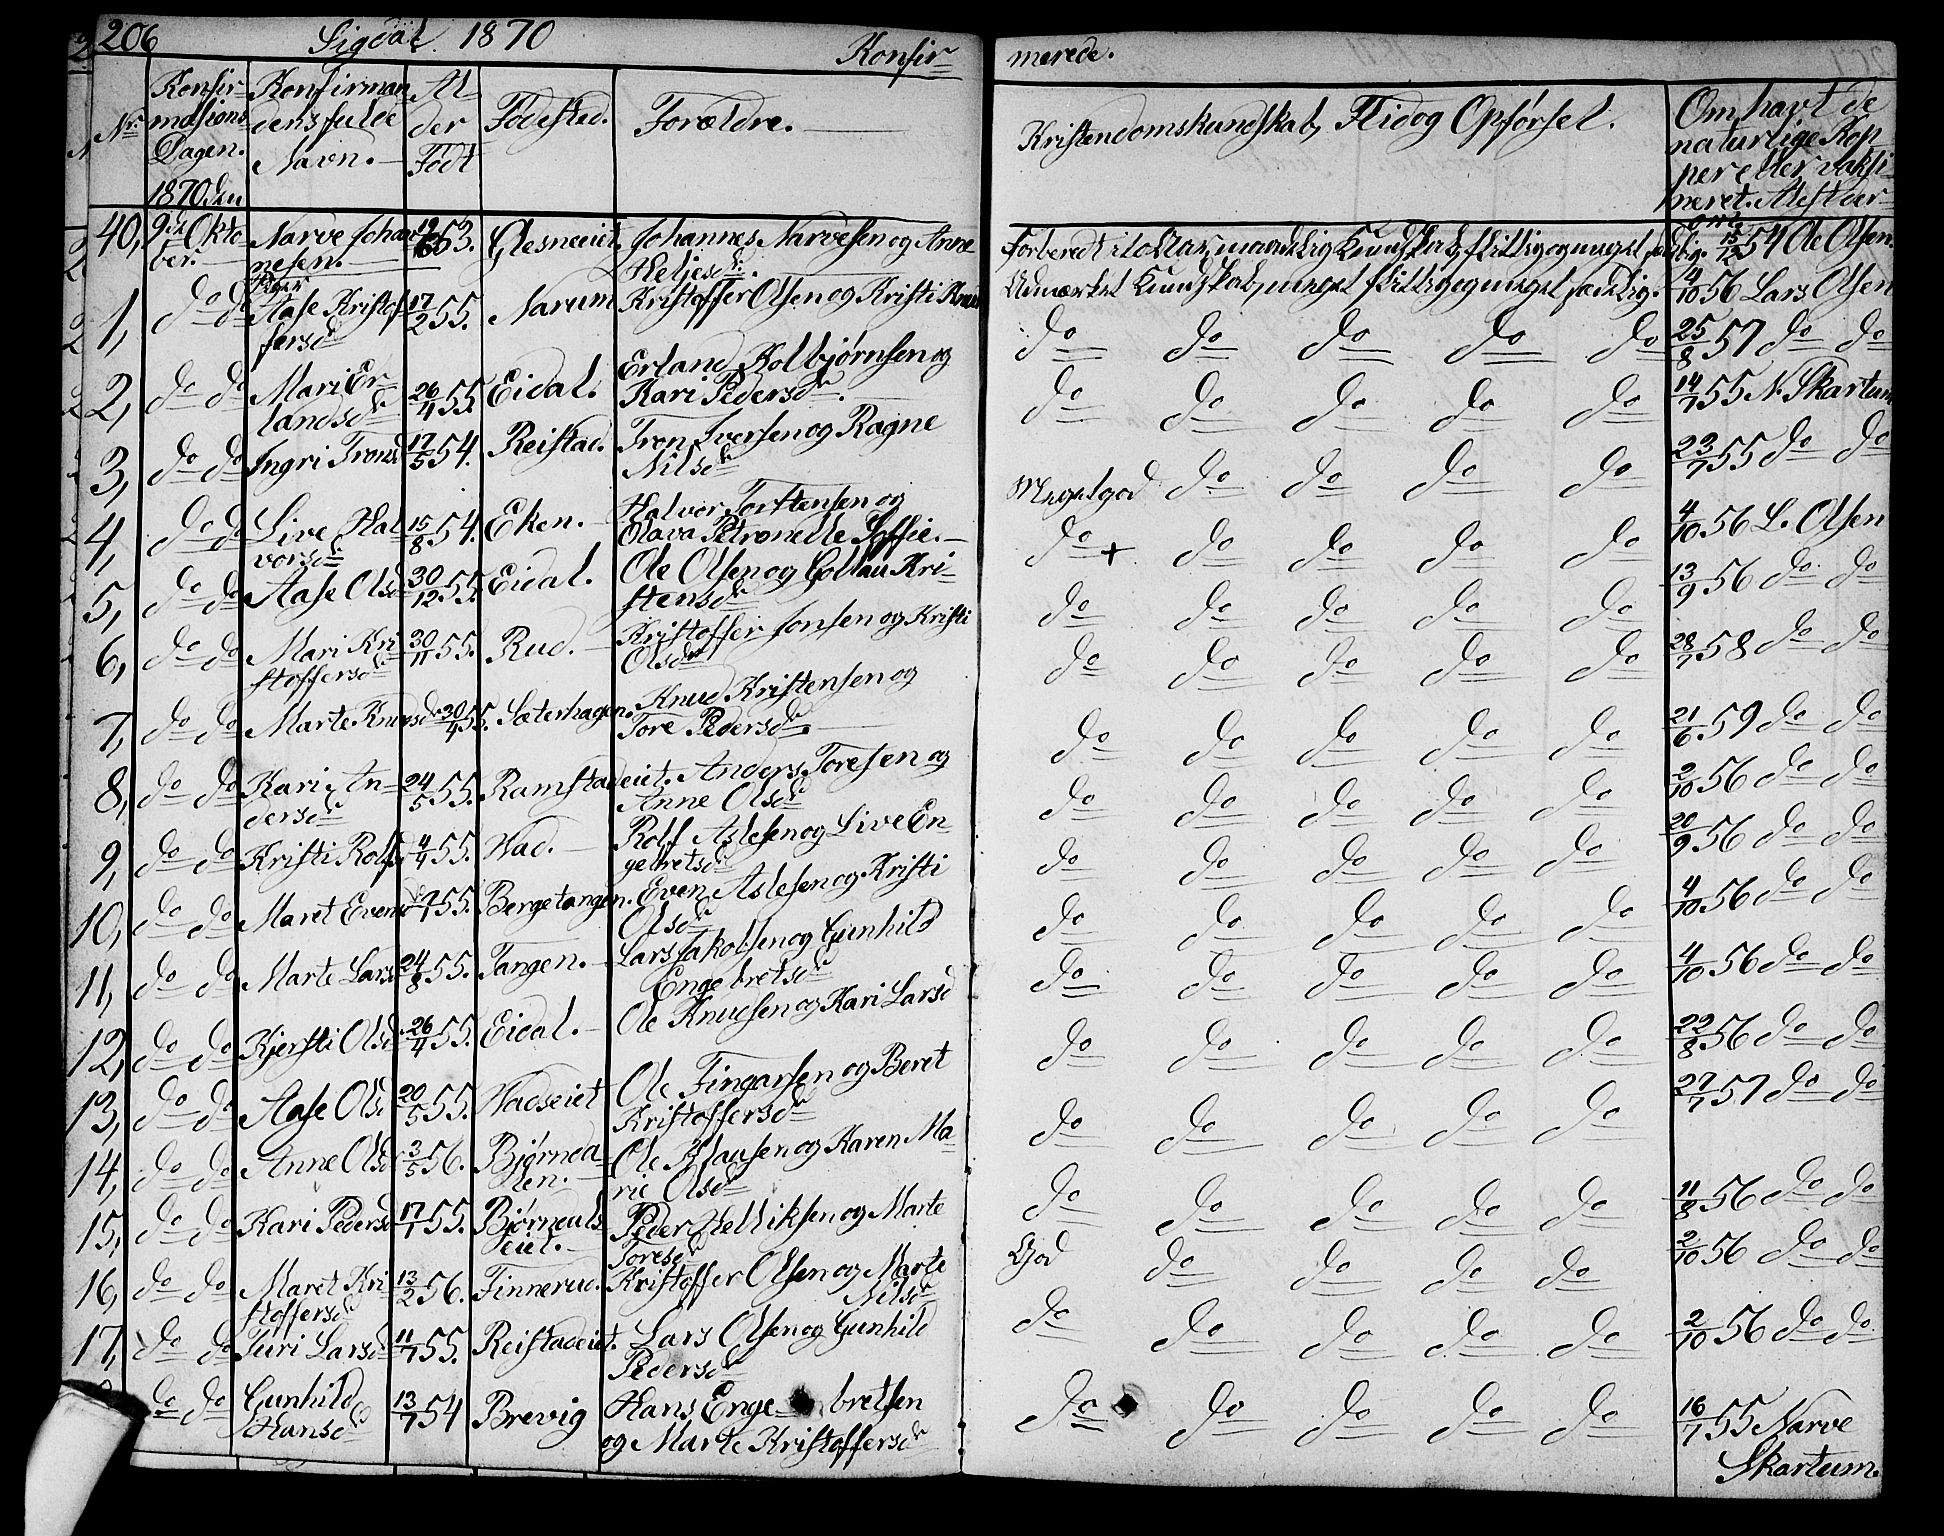 206 Sigdal. 1870 Konfir-
merede.
Nr. Konfir- masions- Dagen. 1870 den
Konfirman- dens fulde Navn.
Al- der Født
Fødested.
Forældre.
Kristendomskundskab, Flid og Opførsel.
Om havt de naturlige Kop- per eller vaksi- neret. Attest der- om.
40, 9de Okto- ber. Narve Johan- nesen. 53. Glesneeiet. Johannes Narvesen og Anne Heljesdr. 15/12 54 Ole Olsen.
Piger
1, do do Aase Kristof- fersdr 17/2 55. Narum Kristoffer Olsen og Kristi Udmærket Kundskab, meget flittig og meget sædelig. 4/10 56 Lars Olsen
2, do do Mari Er- landsdr 26/4 55. Eidal. Erland Kolbjørnsen og Kari Pedersdr. do do do do do 25/8 57 do do
3, do do Ingri Tronsd 17/5 54. Reistad. Tron Iversen og Ragne Nilsdr do do do do do 14/7 55 N. Skartum
4, do do Live Hal- vorsdr 15/8 54. Eken. Halvor Torstensen og Olava Petronelle Soffie. Meget god do do do do 23/7 55 do do
5, do do Aase Olsd 30/12 55. Eidal. Ole Olsen og Gollau Kri- stensdr do + do do do do 4/10 56 L. Olsen
6, do do Mari Kri- stoffersdr 30/11 55. Rud. Kristoffer Jonsen og Kristi Olsdr do do do do do 13/9 56 do do
7, do do Marte Knudsdr 30/4 55. Sæterhagen. Knud Kristensen og Tore Pedersdr. do do do do do 28/7 58 do do
8, do do Kari An- dersdr 24/5 55. Ramstadeiet. Anders Toresen og Anne Olsdr do do do do do 21/6 59 do do
9, do do Kristi Rolfsd 4/4 55. Vad. Rolf Aslesen og Live En- gebretsdr do do do do do 2/10 56 do do
10, do do Maret Evensd 55. Bergetangen. Even Aslesen og Kristi Olsdr do do do do do 20/9 56 do do
11, do do Marte Larsd 24/8 55. Tangen. Lars Jakobsen og Gunhild Engebretsdr do do do do do 4/10 56 do do
12, do do Kjersti Olsd 26/4 55. Eidal. Ole Knudsen og Kari Larsd do do do do do 4/10 56 do do
13, do do Aase Olsd 20/5 55. Vadseiet Ole Fingarsen og Beret Kristoffersdr do do do do do 22/8 56 do do
14, do do Anne Olsd 3/5 56. Bjørneda- len. Ole Klausen og Karen Ma- rie Olsdr do do do do do 27/7 57 do do
15, do do Kari Pedersd 17/7 55. Bjørnedals- eiet. Peder Helliksen og Marte Toresdr do do do do do 11/8 56 do do
16, do do Maret Kri- stoffersdr 13/2 56. Finnerud. Kristoffer Olsen og Marte Nilsdr God do do do do 2/10 56 do do
17, do do Turi Larsd 11/7 55. Reistadeiet. Lars Olsen og Gunhild Pedersdr do do do do do 2/10 56 do do
do do Gunhild Hansdr 13/7 54 Brevig Hans Enge- bretsen og Marte Kristoffersdr do do do do do 16/7 55 Narve Skartum.